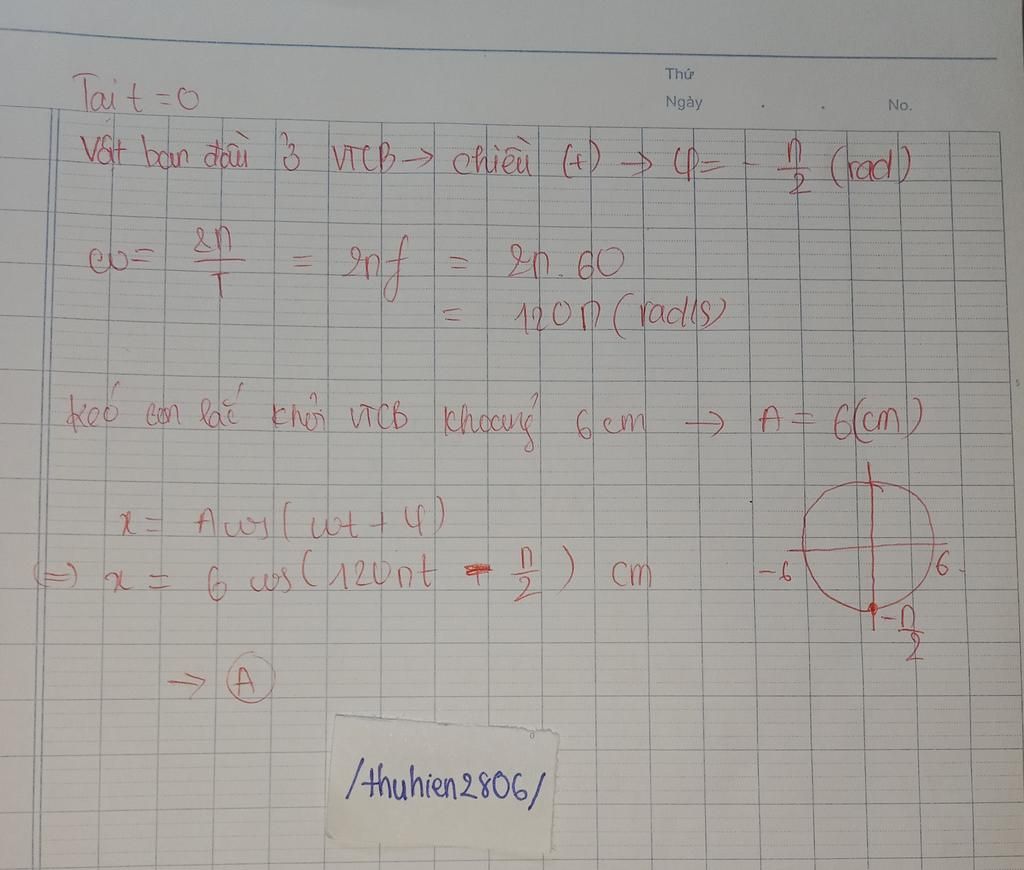 Thứ
Ngày . . No.
Tại t = 0
Vật ban đầu ở VTCB → chiều (+) → φ = - π/2 (rad)
ω = 2π/T = 2πf = 2π.60
= 120π (rad/s)
Kéo con lắc khỏi VTCB khoảng 6 cm → A = 6(cm)
x = Acos(ωt + φ)
⇔ x = 6 cos(120πt - π/2) cm
-6 6
-π/2
→ A
/thuhien2806/